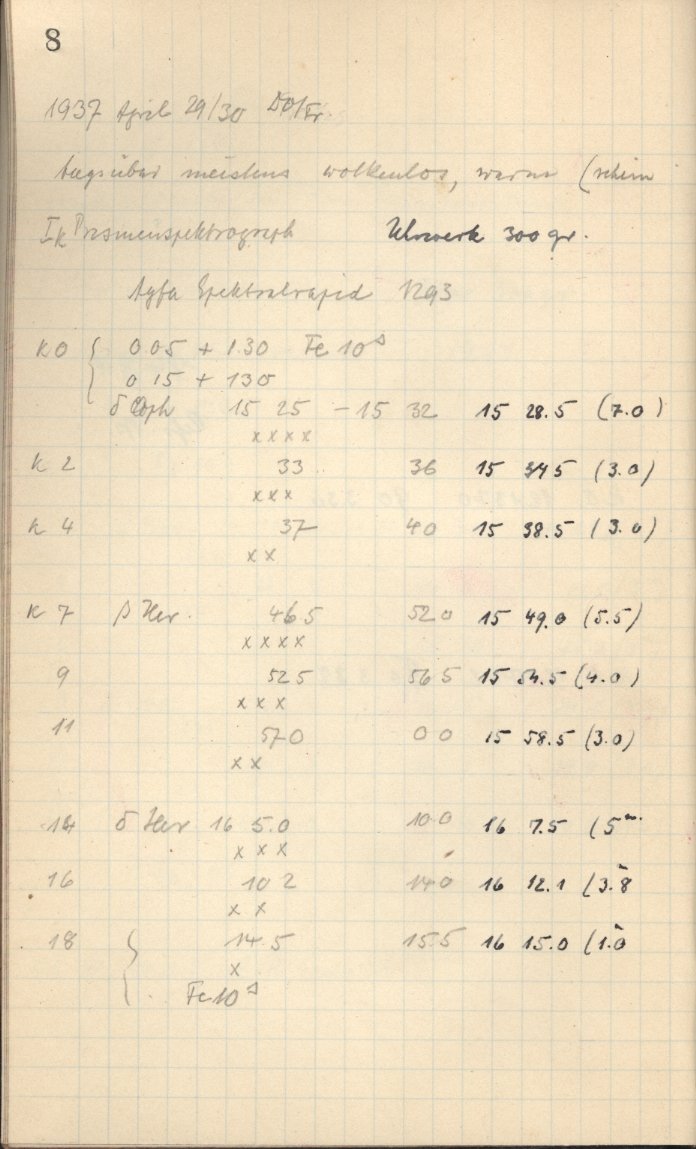 8
1937 April 29/30 Do/Fr.
tagsüber meistens wolkenlos, warm (
Prismenspektrograph Uhrwerk 300 gr.
Agfa Spektralrapid 1293
K 0 { 0.05 + 1.30 Fe 10s
0.15 + 130
δ Oph 15 25 - 15 32 15 28.5 (7.0)
x x x x
K 2 33 36 15 34.5 (3.0)
x x x
K 4 37 40 15 38.5 (3.0)
x x
K 7 β Her. 46.5 52.0 15 49.0 (5.5)
x x x x
9 52.5 56.5 15 54.5 (4.0)
x x x
11 57.0 0 0 15 58.5 (3.0)
x x
14 δ Her 16 5.0 10.0 16 7.5 (5m.
x x x
16 10 2 14.0 16 12.1 (3.8
x x
18 { 14.5 15.5 16 15.0 (1.0
x
Fe 10s